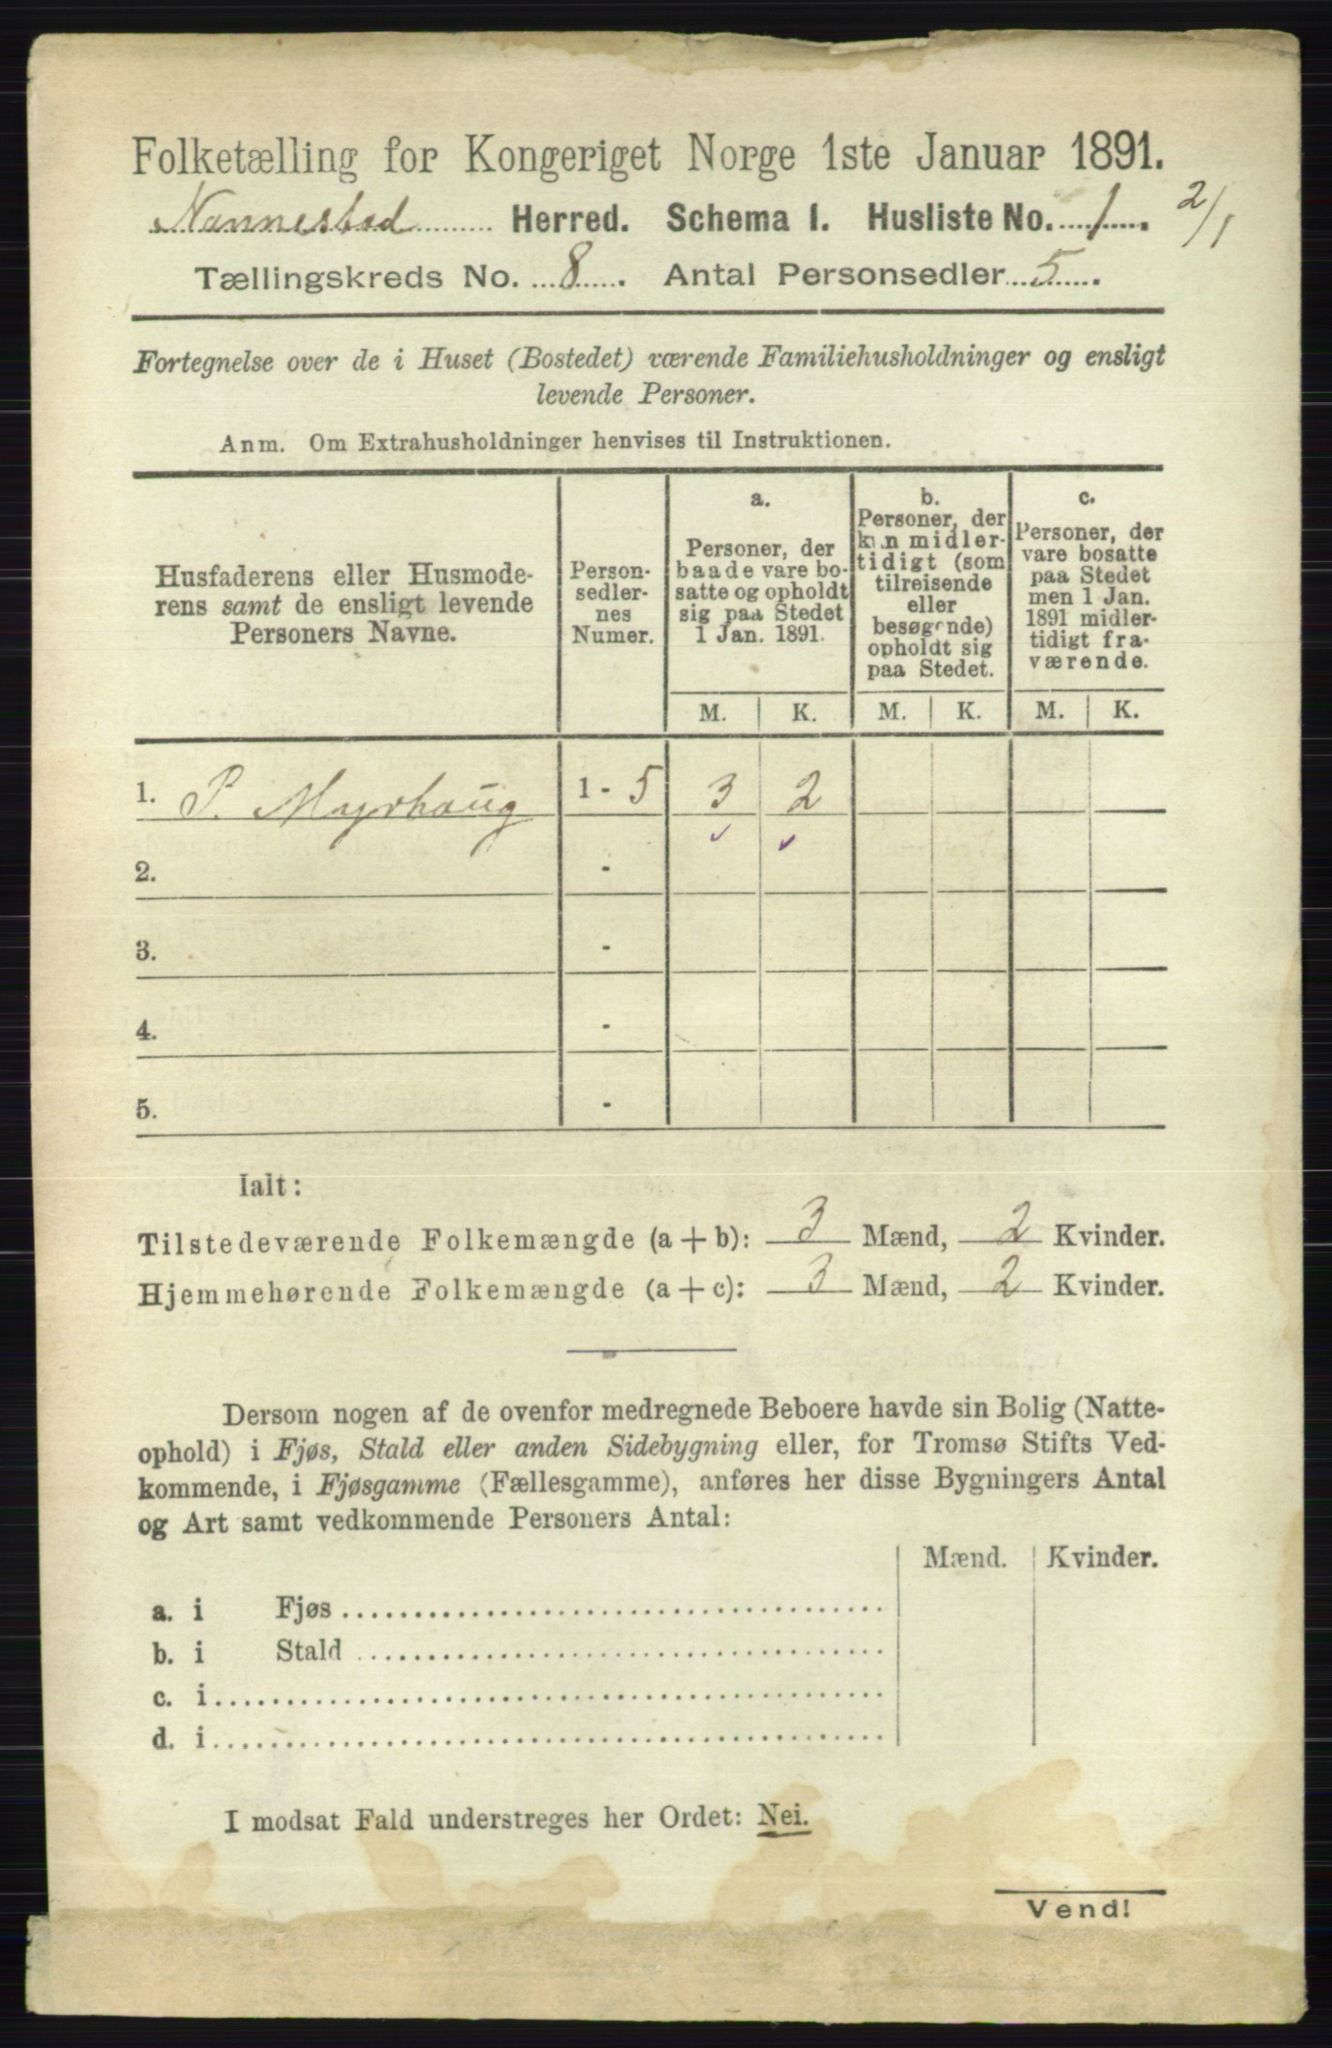 Folketælling for Kongeriget Norge 1ste Januar 1891.
Nannestad Herred. Schema 1. Husliste No. 1. 2/1
Tællingskreds No. 8. Antal Personsedler 5.
Fortegnelse over de i Huset (Bostedet) værende Familiehusholdninger og ensligt
levende Personer.
Anm. Om Extrahusholdninger henvises til Instruktionen.
Husfaderens eller Husmode-
rens samt de ensligt levende
Personers Navne.
Person-
sedler-
nes
Numer.
a.
Personer, der
baade vare bo-
satte og opholdt
sig paa Stedet
1 Jan. 1891.
b.
Personer, der
kun midler-
tidigt (som
tilreisende
eller
besøgende)
opholdt sig
paa Stedet.
c.
Personer, der
vare bosatte
paa Stedet
men 1 Jan.
1891 midler-
tidigt fra-
værende.
M. K. M. K. M. K.
1. P. Myrhaug 1 - 5 3 2
2. -
3. -
4. -
5. -
Ialt:
Tilstedeværende Folkemængde (a + b): 3 Mænd, 2 Kvinder.
Hjemmehørende Folkemængde (a + c): 3 Mænd, 2 Kvinder.
Dersom nogen af de ovenfor medregnede Beboere havde sin Bolig (Natte-
ophold) i Fjøs, Stald eller anden Sidebygning eller, for Tromsø Stifts Ved-
kommende, i Fjøsgamme (Fællesgamme), anføres her disse Bygningers Antal
og Art samt vedkommende Personers Antal:
Mænd. Kvinder.
a. i Fjøs
b. i Stald
c. i
d. i
I modsat Fald understreges her Ordet: Nei.
Vend!